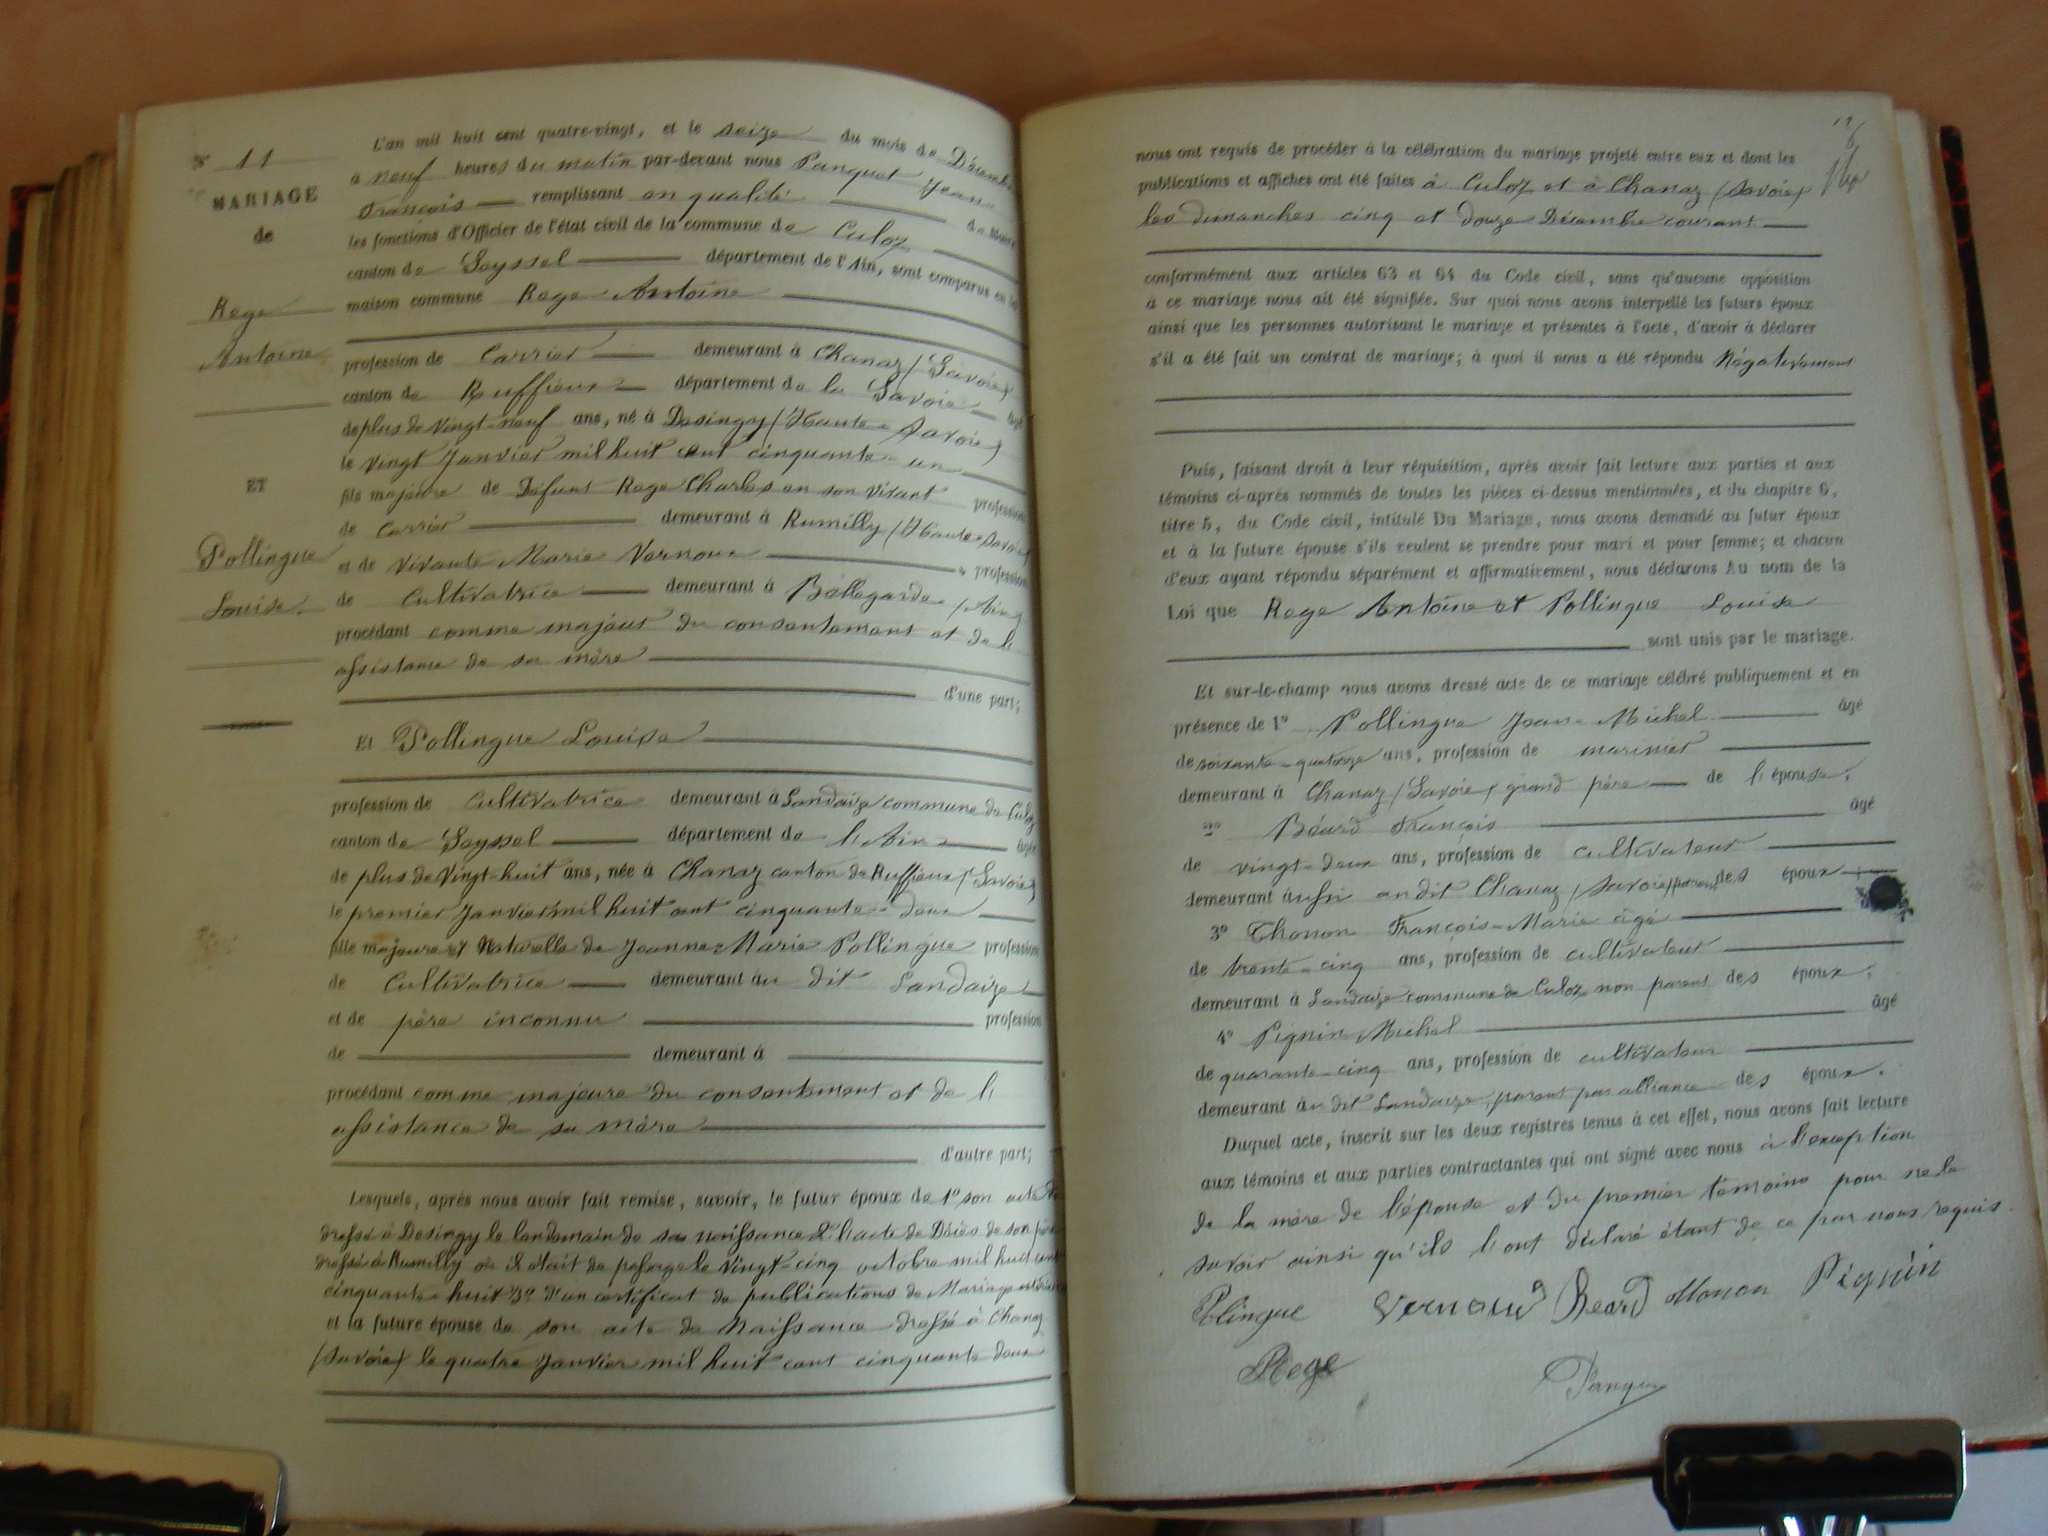 N° 11
MARIAGE
de
Rege
Antoine
ET
Pollingue
Louise.
L'an mil huit cent quatre-vingt, et le seize du mois de Décembre
a neuf heures du matin par-devant nous Panquet Jean
François remplissant en qualité de Maire
les fonctions d'Officier de l'état civil de la commune de Culoz
canton de Seyssel département de l'Ain, sont comparus en la
maison commune Rege Antoine
profession de Carrier demeurant à Chanaz (Savoie)
canton de Ruffieux département de la Savoie âgé
de plus de Vingt-neuf ans, né à Desingy (Haute Savoie)
le vingt Janvier mil huit cent cinquante un
fils majeure de Défunt Rege Charles en son Vivant profession
de Carrier demeurant à Rumilly (Haute-Savoie)
et de Vivante Marie Vernoux profession
de Cultivatrice demeurant à Bellegarde (Ain)
procédant comme majeur du consentement et de l'
assistance de sa mère
d'une part;
Et Pollingue Louise
profession de Cultivatrice demeurant à Landaize commune de Culoz
canton de Seyssel département de l'Ain âgée
de plus de Vingt-huit ans, née à Chanaz canton de Ruffieux (Savoie)
le premier Janvier mil huit cent cinquante-deux
fille majeure et Naturelle de Jeanne-Marie Pollingue profession
de Cultivatrice demeurant au dit Landaize
et de père inconnu profession
de demeurant à
procédant comme majeure du consentement et de l'
assistance de sa mère
d'autre part;
Lesquels, après nous avoir fait remise, savoir, le futur époux de 1° son acte de
dressé à Desingy le lendemain de sa naissance 2° l'acte de Décès de son père
dressé à Rumilly où il était de passage le Vingt-cinq octobre mil huit cent
cinquante-huit 3° d'un certificat de publications de Mariage
et la future épouse de son acte de Naissance dressé à Chanaz
(Savoie) le quatre Janvier mil huit cent cinquante deux
nous ont requis de procéder à la célébration du mariage projeté entre eux et dont les
publications et affiches ont été faites à Culoz et à Chanaz (Savoie)
les dimanches cinq et douze Décembre courant
conformément aux articles 63 et 64 du Code civil, sans qu'aucune opposition
à ce mariage nous ait été signifiée. Sur quoi nous avons interpellé les futurs époux
ainsi que les personnes autorisant le mariage et présentes à l'acte, d'avoir à déclarer
s'il a été fait un contrat de mariage; à quoi il nous a été répondu Négativement
Puis, faisant droit à leur réquisition, après avoir fait lecture aux parties et aux
témoins ci-après nommés de toutes les pièces ci-dessus mentionnées, et du chapitre 6,
titre 5, du Code civil, intitulé Du Mariage, nous avons demandé au futur époux
et à la future épouse s'ils veulent se prendre pour mari et pour femme; et chacun
d'eux ayant répondu séparément et affirmativement, nous déclarons Au nom de la
Loi que Rege Antoine et Pollingue Louise
sont unis par le mariage.
Et sur-le-champ nous avons dressé acte de ce mariage célébré publiquement et en
présence de 1° Pollingue Jean-Michel âgé
de soixante-quatorze ans, profession de marinier
demeurant à Chanaz (Savoie) grand père de l'épouse;
2° Béard François âgé
de vingt-deux ans, profession de cultivateur
demeurant aussi au dit Chanaz (Savoie) des époux
3° Thonon François-Marie âgé
de trente-cinq ans, profession de cultivateur
demeurant à Landaize commune de Culoz non parent des époux;
4° Pignin Michel âgé
de quarante-cinq ans, profession de cultivateur
demeurant au dit Landaize, parent par alliance des époux.
Duquel acte, inscrit sur les deux registres tenus à cet effet, nous avons fait lecture
aux témoins et aux parties contractantes qui ont signé avec nous à l'exception
de la mère de l'épouse et du premier témoins pour ne le
savoir ainsi qu'ils l'ont déclaré étant de ce par nous requis.
Plingue Vernoux Beard Pignin
Rege